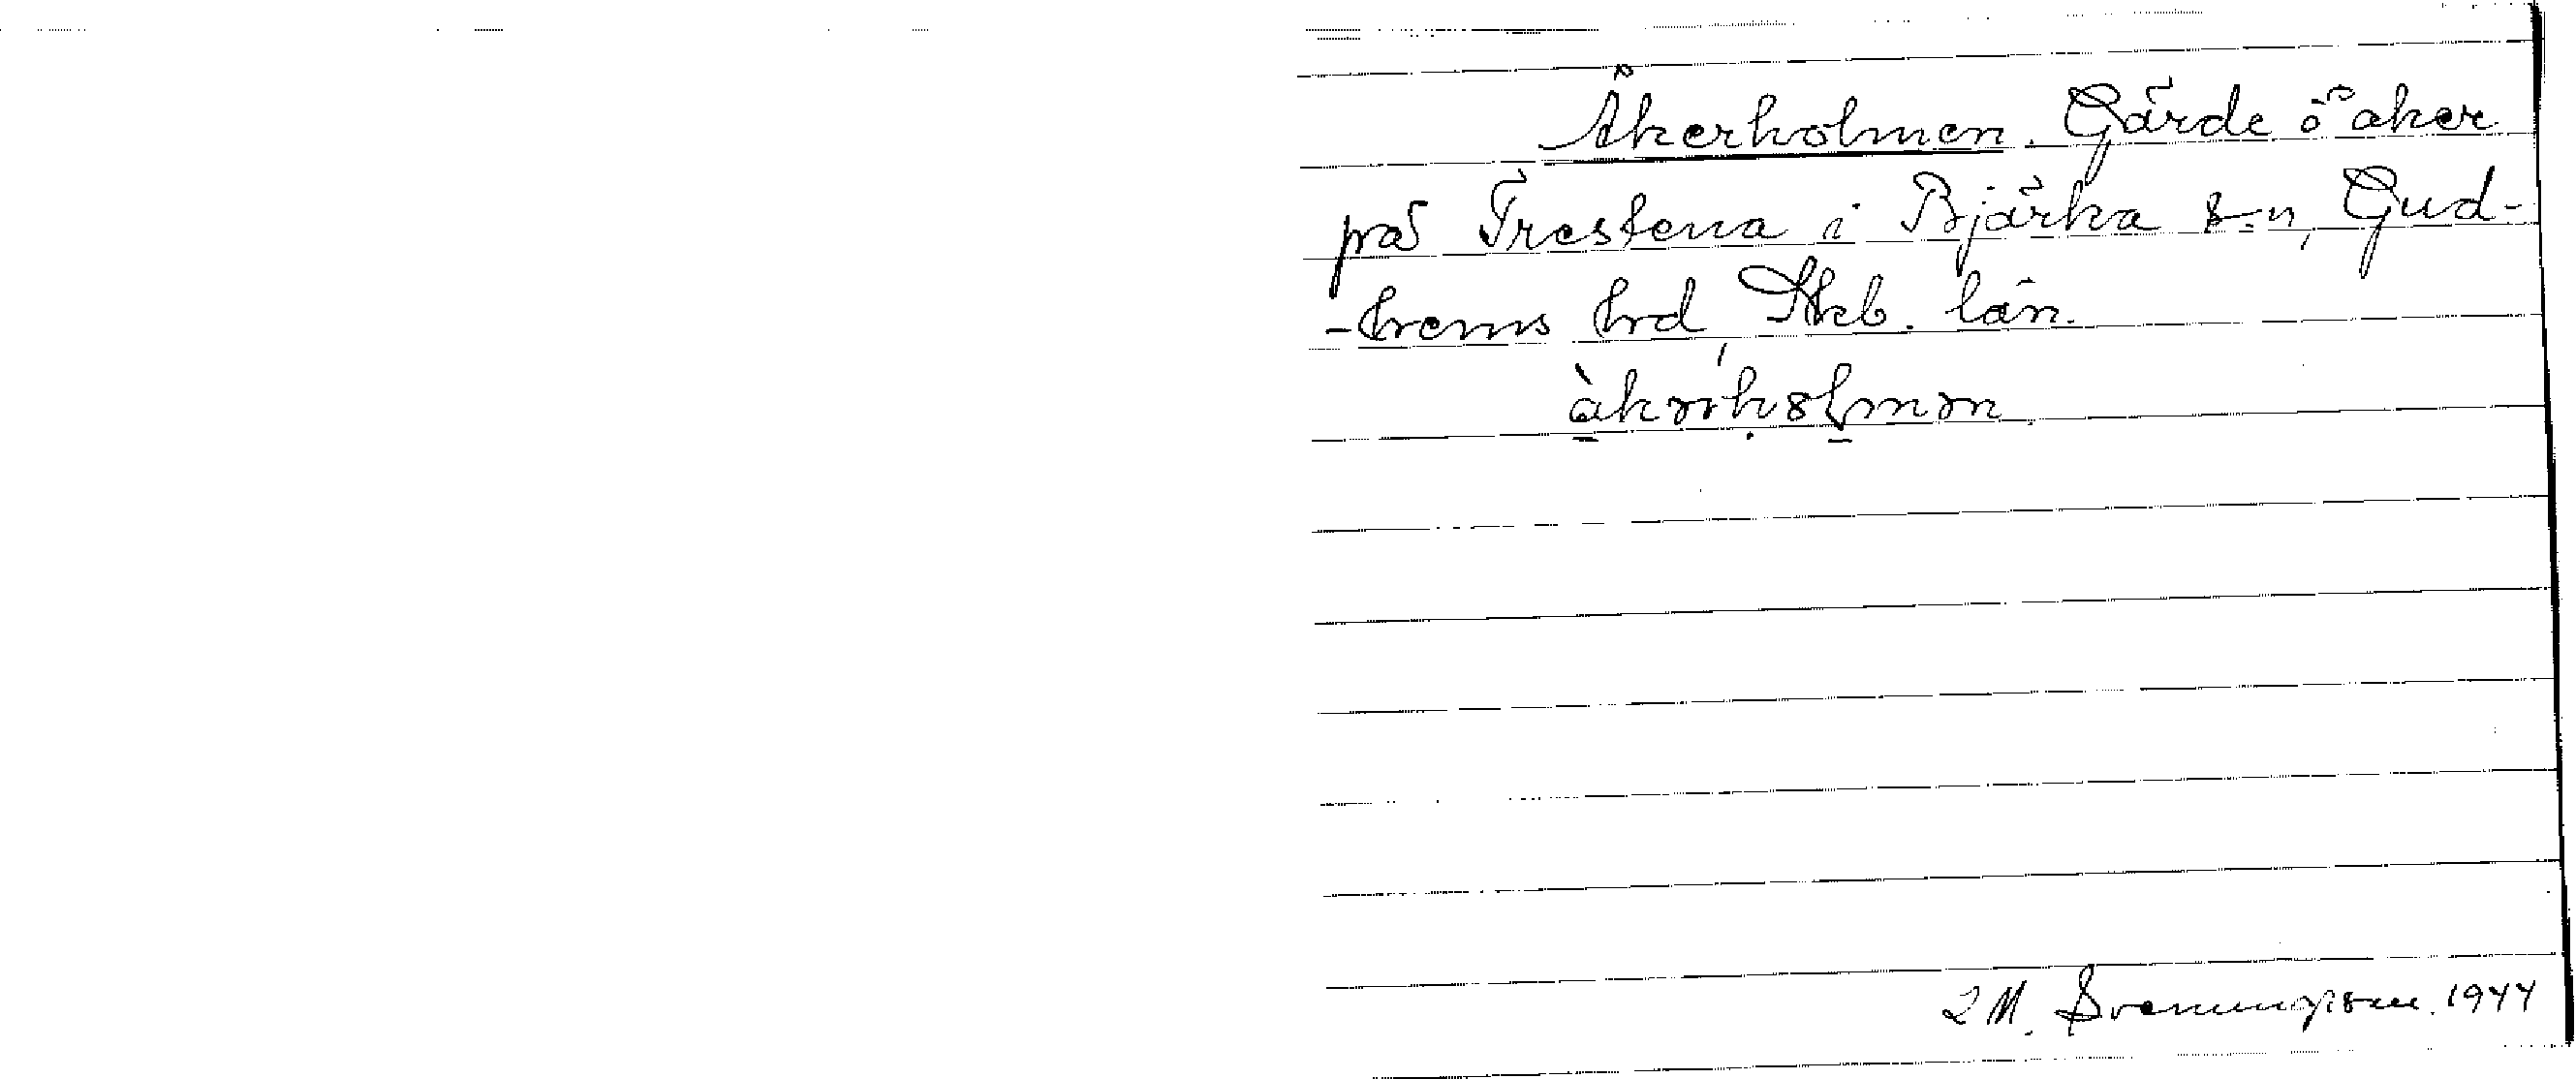 Åkerholmen. Gärde o åker
på Trestena i Bjärka s-n, Gud-
-hems hrd, Skb. län.
Svenungsson. 1944